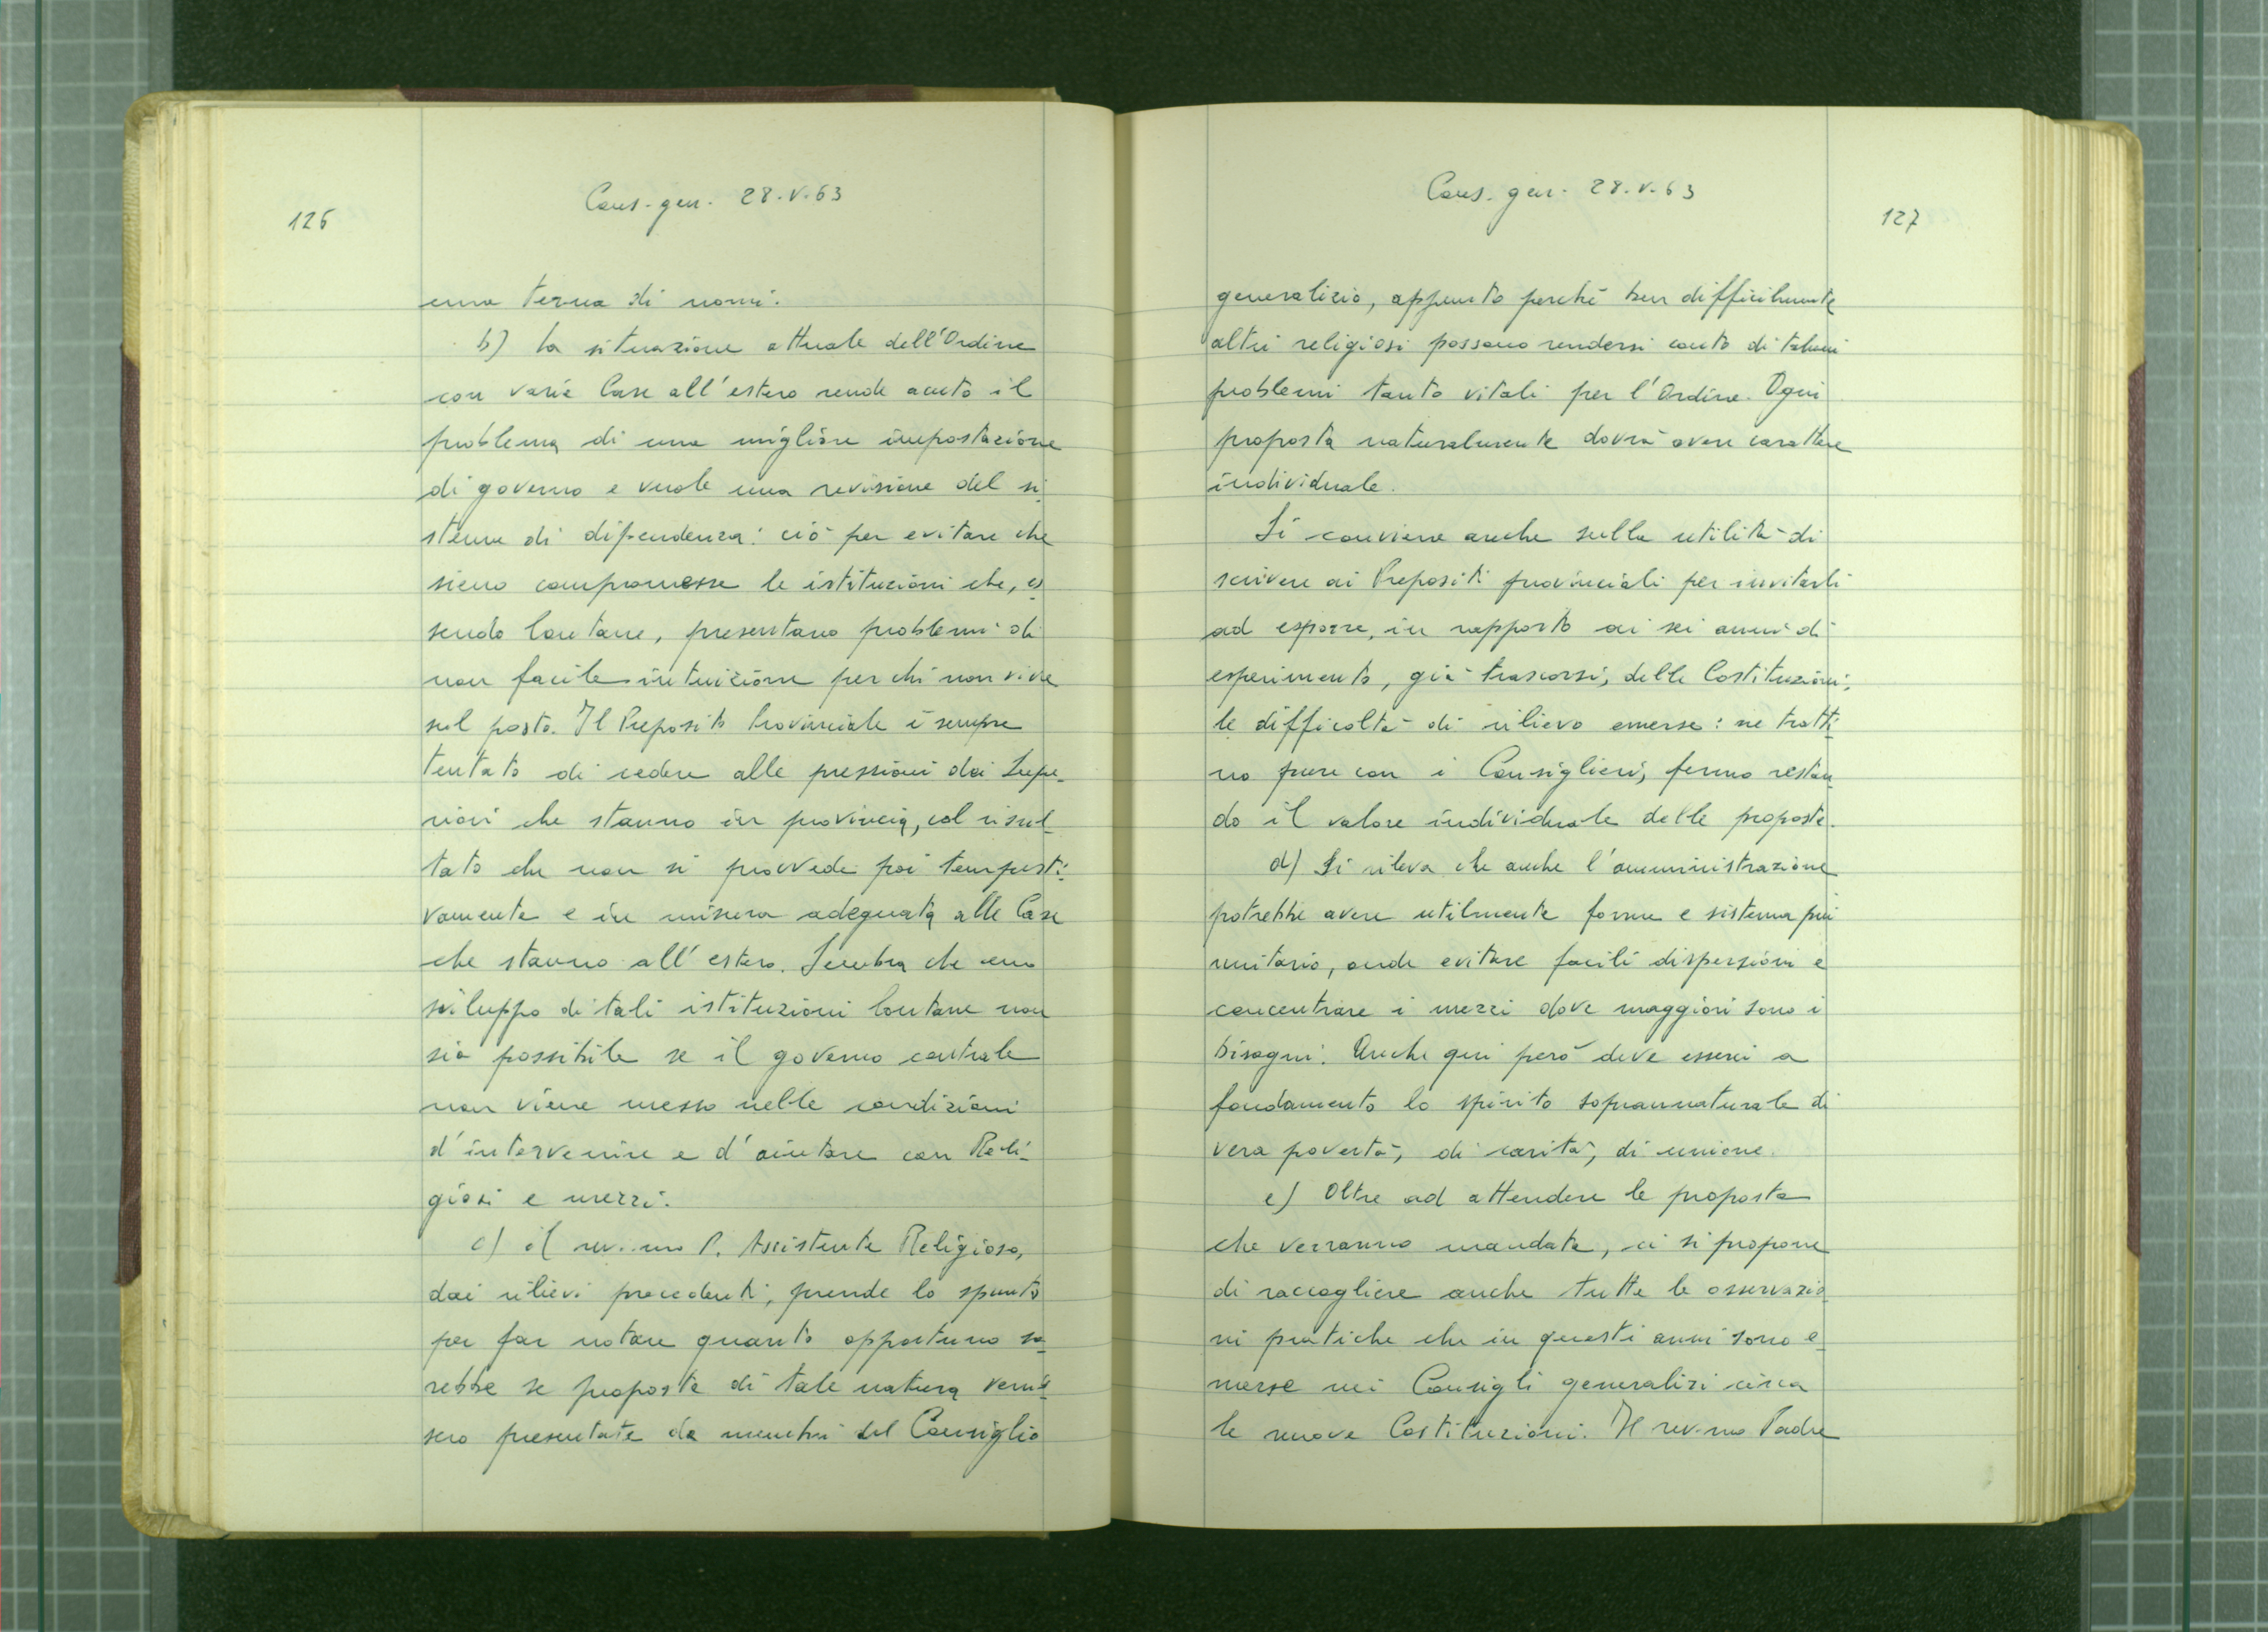 126
Cons. gen. 28.V.63
una terna di nomi.
b) La situazione attuale dell'Ordine
con varie Case all'estero rende acuto il
problema di una migliore impostazione
di governo e vuole una revisione del si-
stema di dipendenza: ciò per evitare che
sieno compromesse le istituzioni che, es-
sendo lontane, presentano problemi di
non facile intuizione per chi non vive
sul posto. Il Preposito Provinciale è sempre
tentato di cedere alle pressioni dei Supe-
riori che stanno in provincia, col risul-
tato che non si provvede poi tempesti-
vamente e in misura adeguata alle Case
che stanno all'estero. Sembra che uno
sviluppo di tali istituzioni lontane non
sia possibile se il governo centrale
non viene messo nelle condizioni
d'intervenire e d'aiutare con Reli-
giosi e mezzi.
c) il rev.mo P. Assistente Religioso,
dai rilievi precedenti, prende lo spunto
per far notare quanto opportuno sa-
rebbe se proposte di tale natura venis-
sero presentate da membri del Consiglio
Cons. gen. 28.V.63
127
generalizio, appunto perché ben difficilmente
altri religiosi possono rendersi conto di taluni
problemi tanto vitali per l'Ordine. Ogni
proposta naturalmente dovrà avere carattere
individuale.
Si conviene anche sulla utilità di
scrivere ai Prepositi provinciali per invitarli
ad esporre, in rapporto ai sei anni di
esperimento, già trascorsi, delle Costituzioni,
le difficoltà di rilievo emerse: ne tratti-
no pure con i Consiglieri, fermo restan-
do il valore individuale delle proposte.
d) Si rileva che anche l'amministrazione
potrebbe avere utilmente forme e sistema più
unitario, onde evitare facili dispersioni e
concentrare i mezzi dove maggiori sono i
bisogni. Anche qui però deve esserci a
fondamento lo spirito soprannaturale di
vera povertà, di carità, di unione.
e) Oltre ad attendere le proposte
che verranno mandate, ci si propone
di raccogliere anche tutte le osservazio-
ni pratiche che in questi anni sono e-
merse nei Consigli generalizi circa
le nuove Costituzioni. Il rev.mo Padre